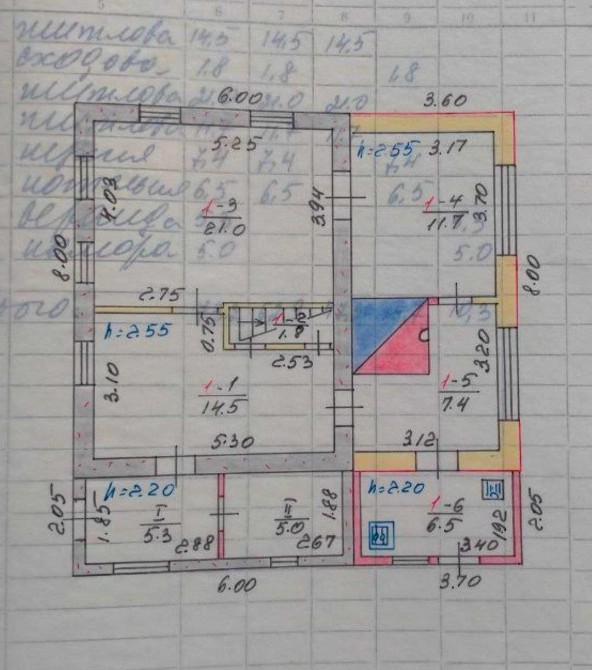 5 6 7 8 9 10 11
житлова 14,5 14,5 14,5
сходова 1.8 1,8 1,8
житлова 21.0 21.0
7,4 7,4
6,5 6,5 6,5
веранда
комора 5.0 5.0
6.00
3.60
5.25
h=2.55 3.17
4.03
1-3
21.0
3.94
1-4
11.7
3.70
8.00
8.00
2.75
h=2.55
0.75
1-2
1.8
2.53
3.10
1-1
14.5
3.20
1-5
7.4
5.30
3.12
2.05
h=2.20
1.85
I
5.3
2.88
II
5.0
1.88
2.67
h=2.20
1-6
6.5
192
3.40
2.05
6.00
3.70